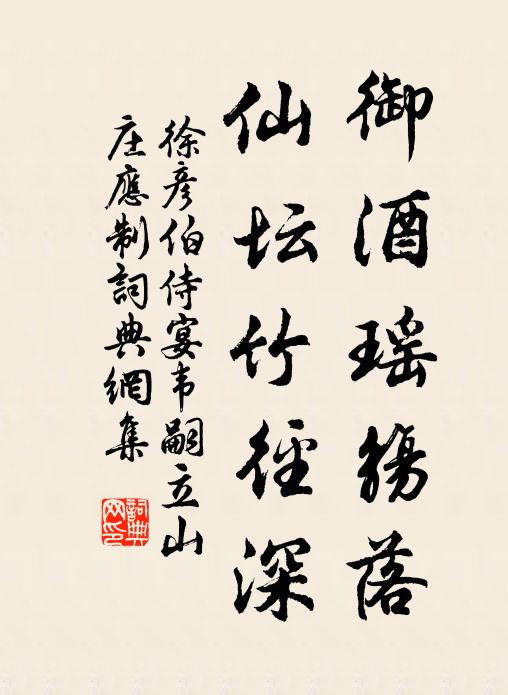 御酒瑶觞落
仙坛竹径深
徐彦伯侍宴韦嗣立山
庄應制詞典網集
詞典網印